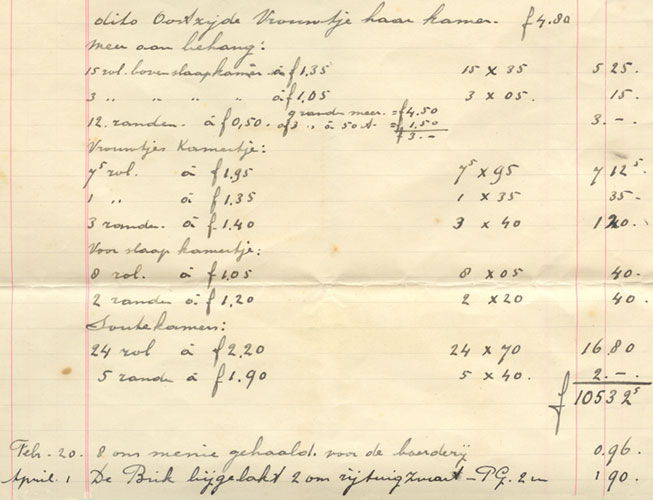 dito Oostzijde Vrouwtje haar kamer. f 4.80
Meer aan behang:
15 rol. boven slaapkamer à f 1,35 15 x 35 5 25.
3 " " " " à f 1,05 3 x 05. 15.
12. randen. à f 0,50. randen meer. = f 4.50
3 " à 50 = f 1,50
f 3.- 3.-.
Vrouwtjes Kamertje:
7⁵ rol. à f 1,95 7⁵ x 95 7 12⁵.
1 " à f 1.35 1 x 35 35-
3 randen. à f 1.40 3 x 40 1 20.
Voor slaap kamertje:
8 rol. à f 1,05 8 x 05 40.
2 randen à f 1,20 2 x 20 40.
24 rol à f 2,20 24 x 70 16 80
5 rande à f 1.90 5 x 40. 2.-.
f 105 32⁵
Febr. 20. 8 ons menie gehaald. voor de boerderij 0.96.
April. 1 De Brik bijgelakt 2 ons rijtuigzwart - P.G. 2 u 1 90.